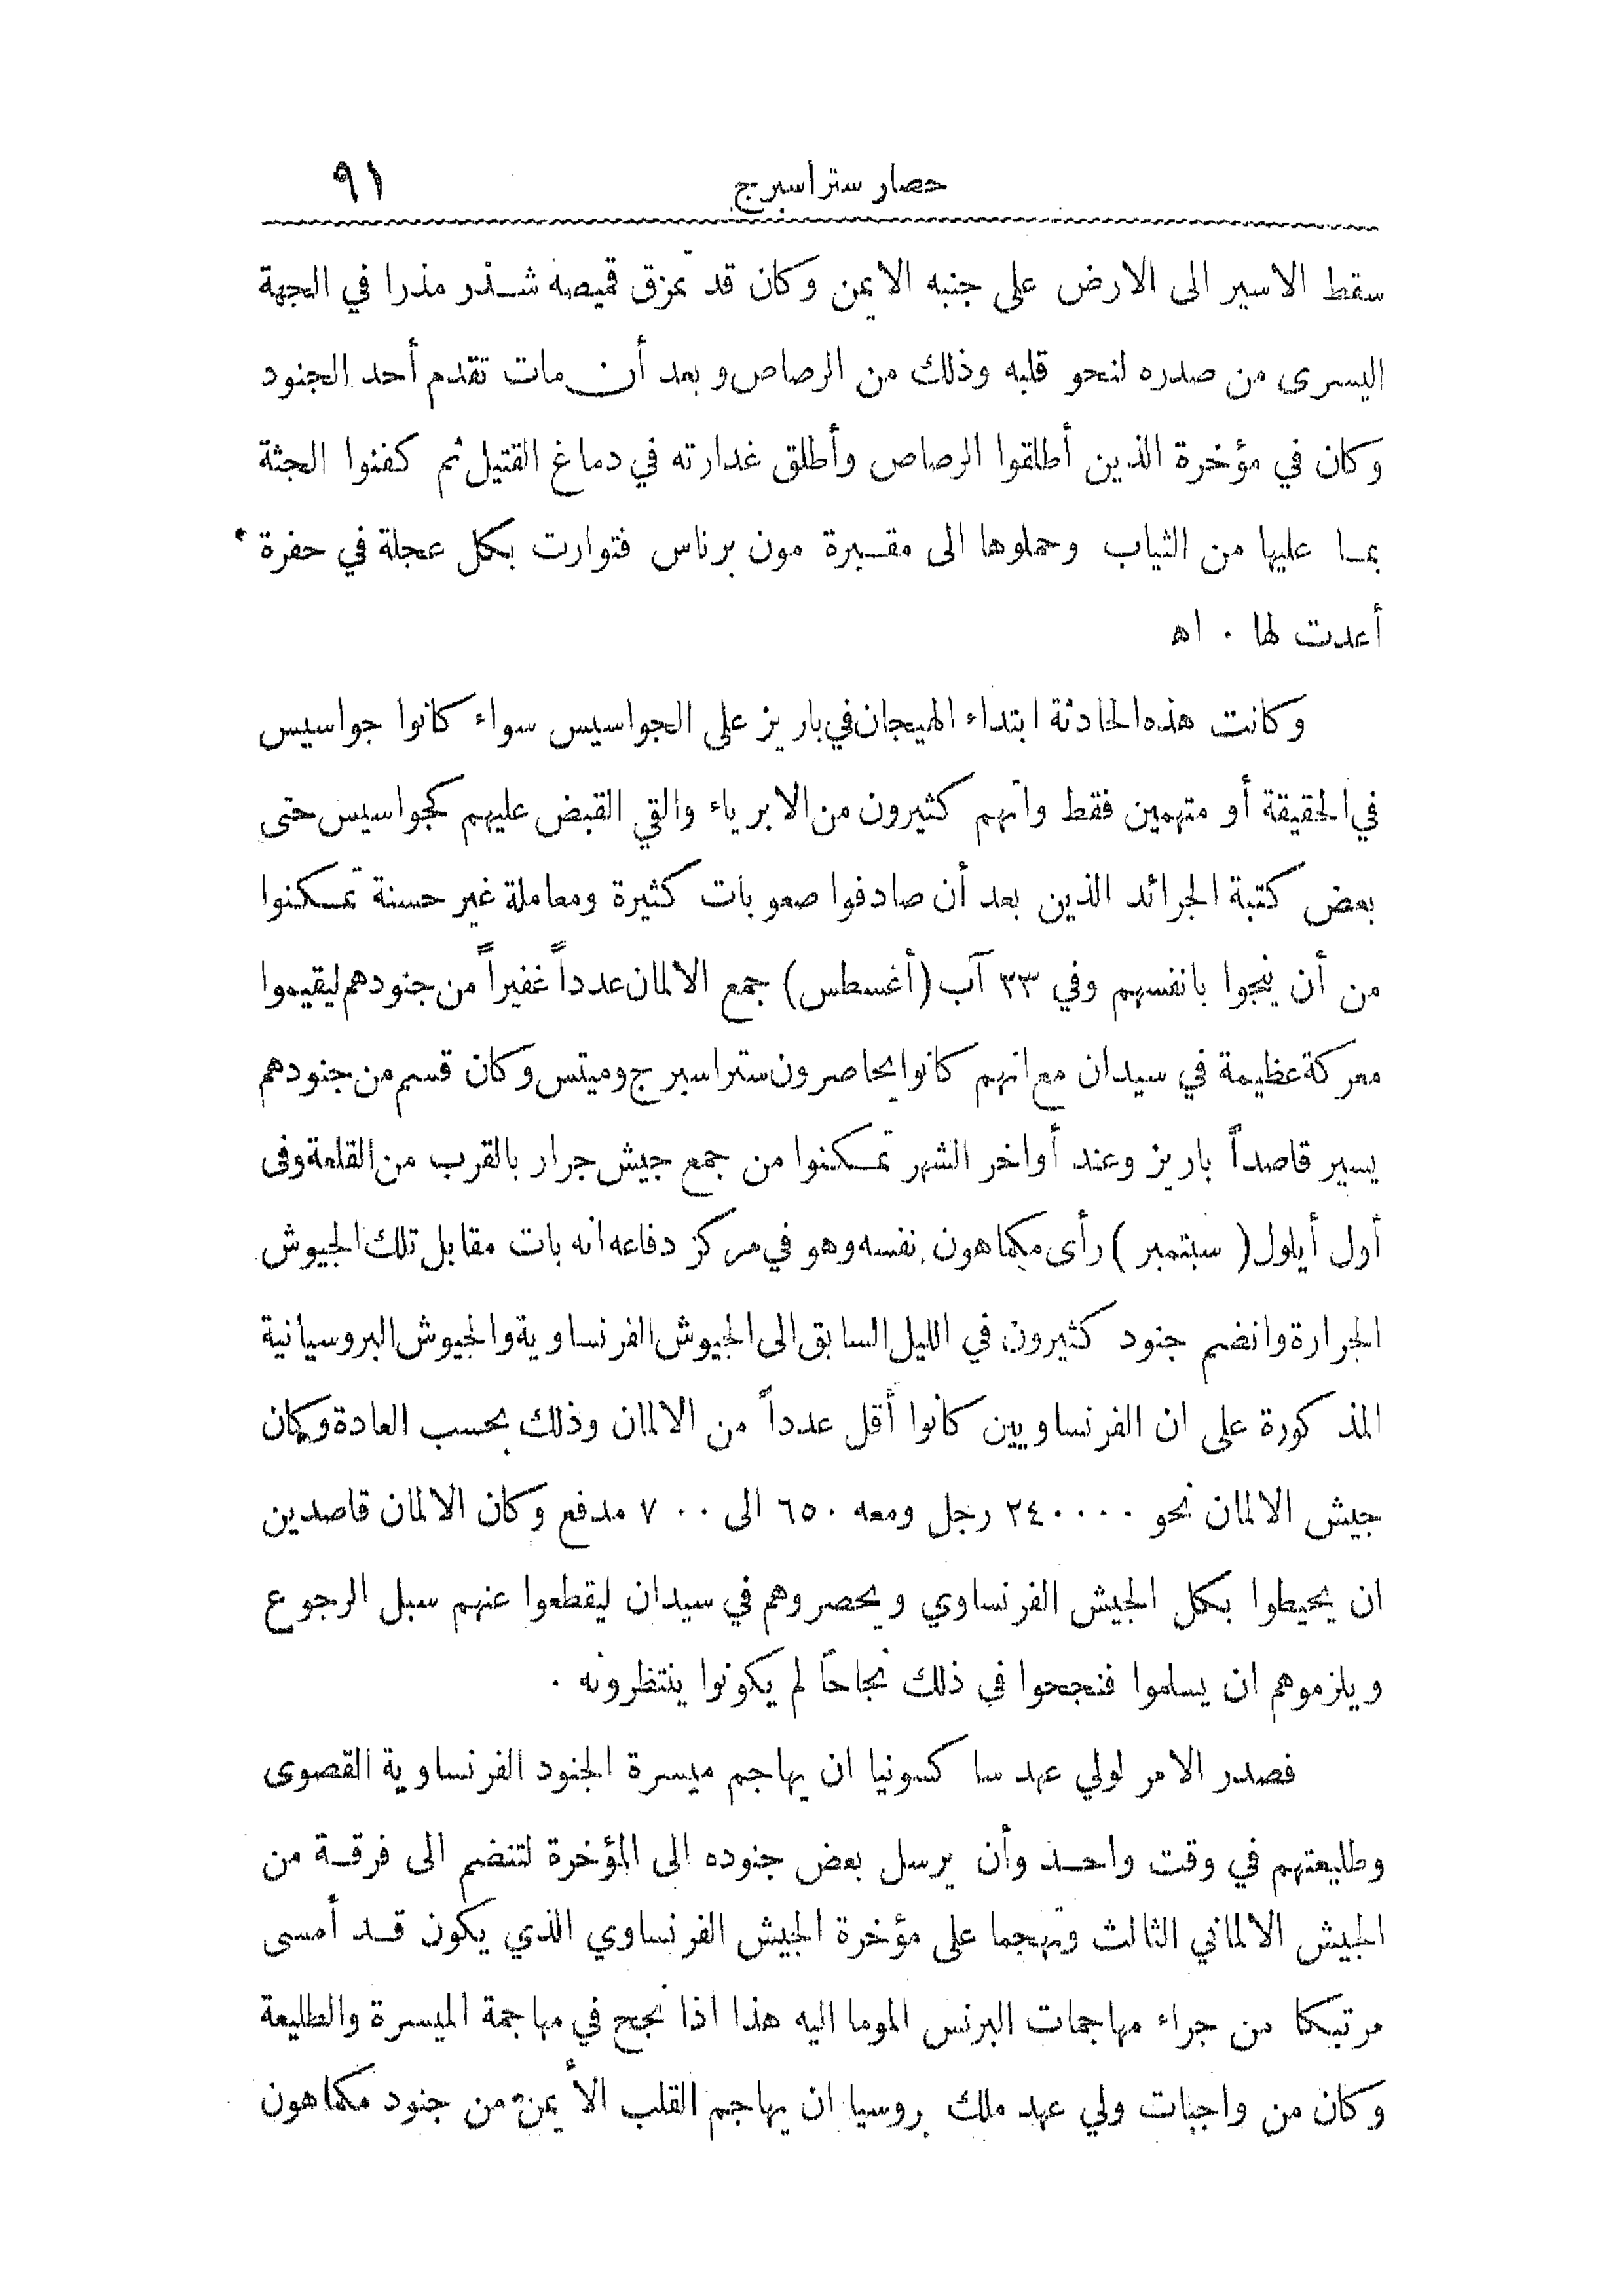 حصار ستراسبرج ٩١
سقط الاسير الى الارض على جنبه الايمن وكان قد تمزق قميصه شذر مذرا في الجهة
اليسرى من صدره لنحو قلبه وذلك من الرصاص وبعد أن مات تقدم أحد الجنود
وكان في مؤخرة الذين أطلقوا الرصاص وأطلق غدارته في دماغ القتيل ثم كفنوا الجثة
بما عليها من الثياب وحملوها الى مقبرة مون برناس فتوارت بكل عجلة في حفرة
أعدت لها ٠ اه
وكانت هذه الحادثة ابتداء الهيجان في باريز على الجواسيس سواء كانوا جواسيس
في الحقيقة أو متهمين فقط واتهم كثيرون من الابرياء والقي القبض عليهم كجواسيس حتى
بعض كتبة الجرائد الذين بعد أن صادفوا صعوبات كثيرة ومعاملة غير حسنة تمكنوا
من أن ينجوا بانفسهم وفي ٣٣ آب (أغسطس) جمع الالمان عدداً غفيراً من جنودهم ليقيموا
معركة عظيمة في سيدان مع انهم كانوا يحاصرون ستراسبرج وميتس وكان قسم من جنودهم
يسير قاصداً باريز وعند أواخر الشهر تمكنوا من جمع جيش جرار بالقرب من القلعة وفى
أول أيلول ( سبتمبر ) رأى مكماهون نفسه وهو في مركز دفاعه انه بات مقابل تلك الجيوش
الجرارة وانضم جنود كثيرون في الليل السابق الى الجيوش الفرنساوية والجيوش البروسيانية
المذكورة على ان الفرنساويين كانوا أقل عدداً من الالمان وذلك بحسب العادة وكان
جيش الالمان نحو ٢٤٠٠٠٠ رجل ومعه ٦٥٠ الى ٧٠٠ مدفع وكان الالمان قاصدين
ان يحيطوا بكل الجيش الفرنساوي ويحصروهم في سيدان ليقطعوا عنهم سبل الرجوع
ويلزموهم ان يسلموا فنجحوا في ذلك نجاحاً لم يكونوا ينتظرونه ٠
فصدر الامر لولي عهد ساكسونيا ان يهاجم ميسرة الجنود الفرنساوية القصوى
وطليعتهم في وقت واحد وأن يرسل بعض جنوده الى المؤخرة لتنضم الى فرقة من
الجيش الالماني الثالث وتهجما على مؤخرة الجيش الفرنساوي الذي يكون قد أمسى
مرتبكا من جراء مهاجمات البرنس الموما اليه هذا اذا نجح في مهاجمة الميسرة والطليعة
وكان من واجبات ولي عهد ملك بروسيا ان يهاجم القلب الأيمن من جنود مكماهون